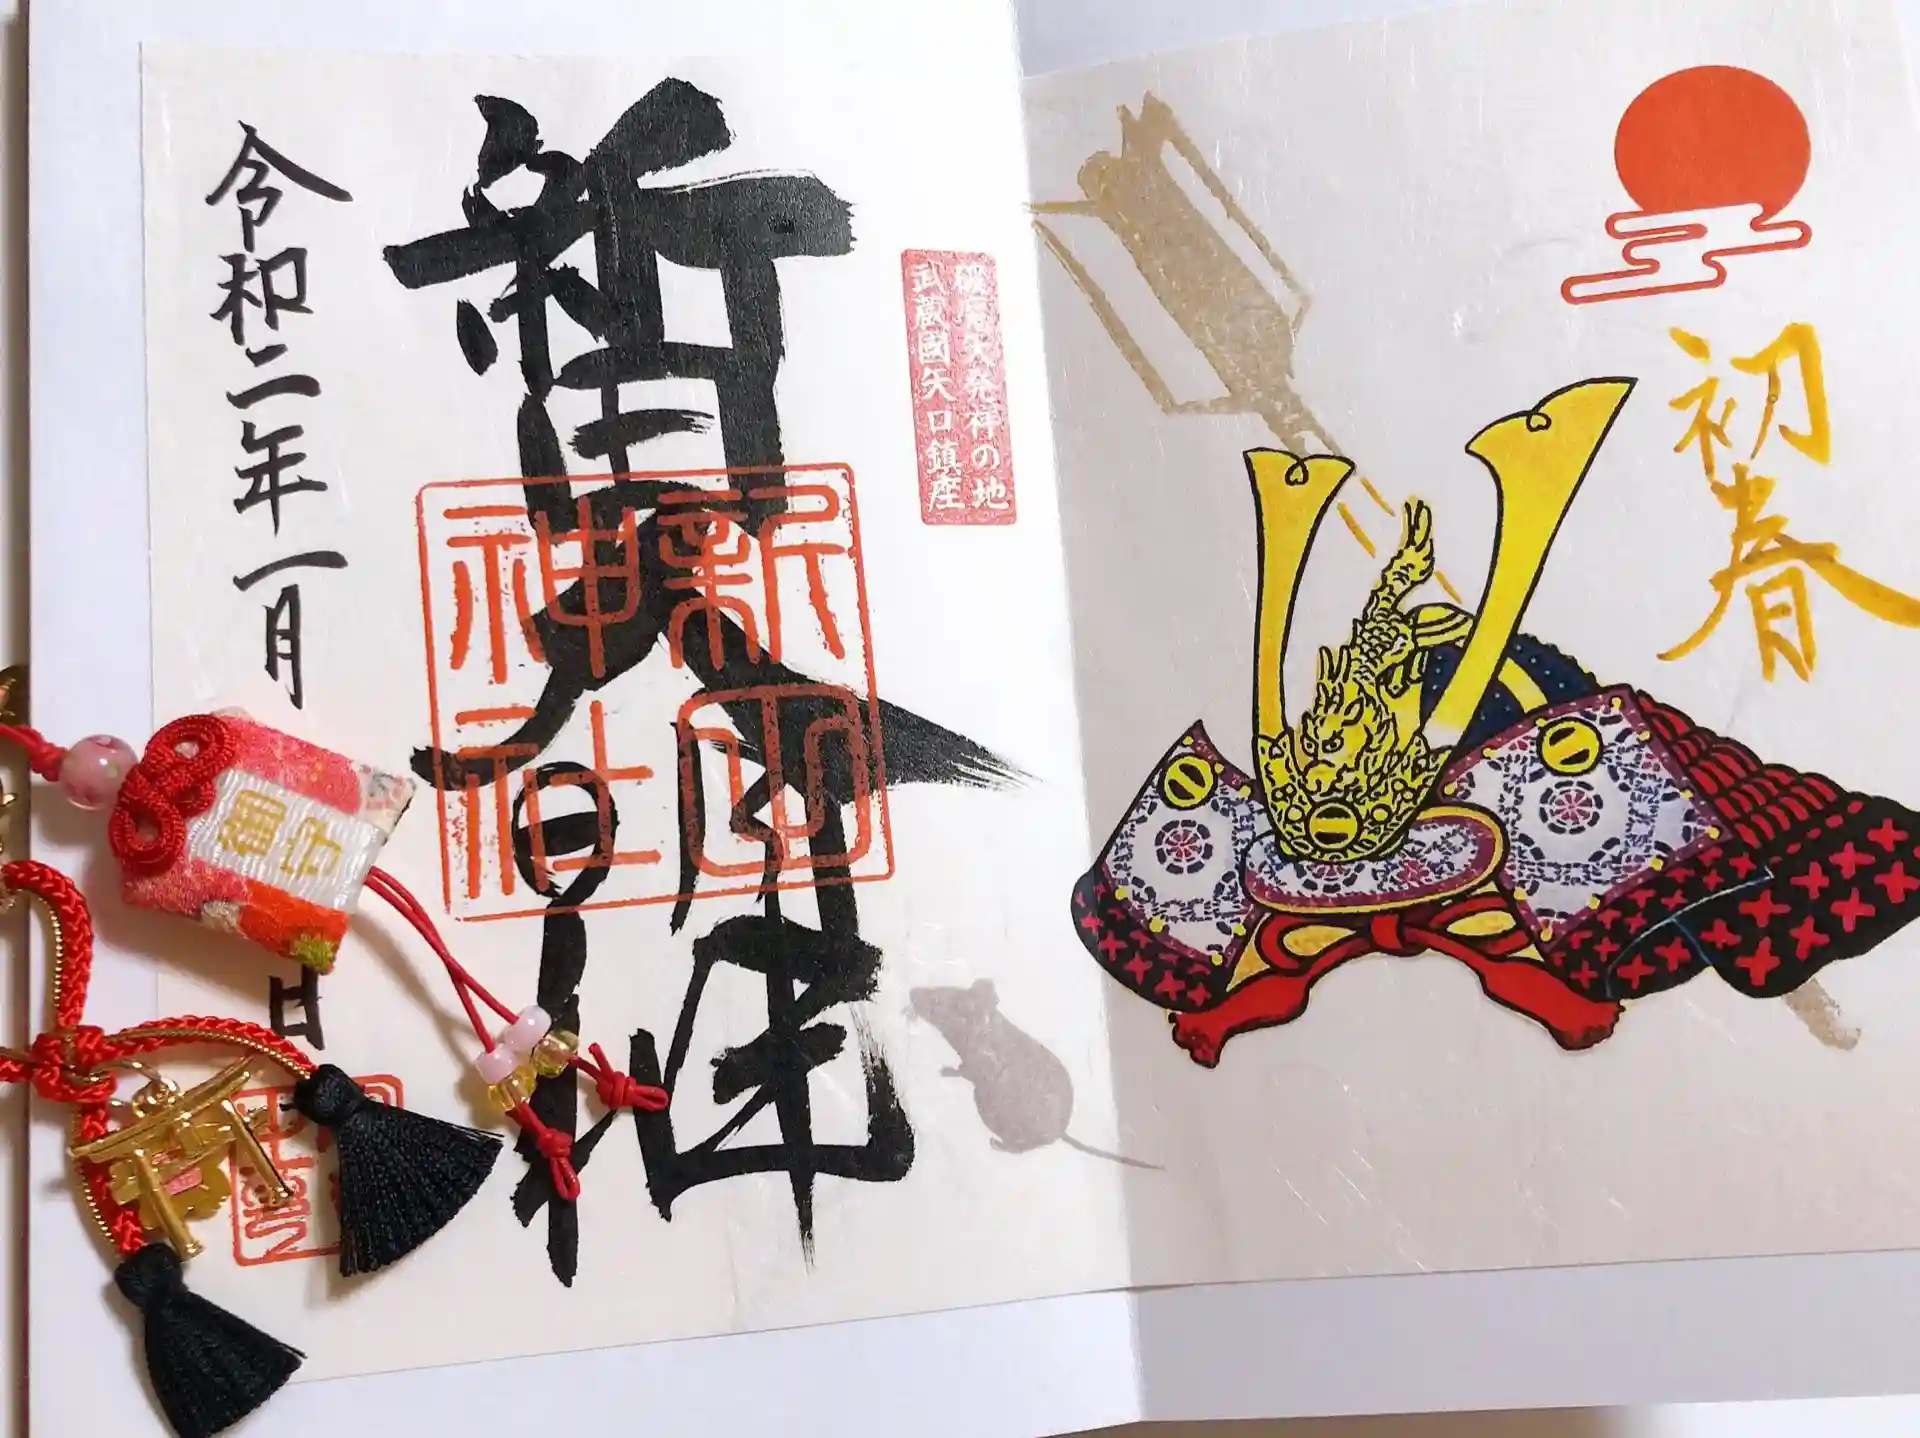 初春
破魔矢発祥の地
武蔵國矢口鎮座
新田大明神
新田
神社
令和二年一月
日
御守